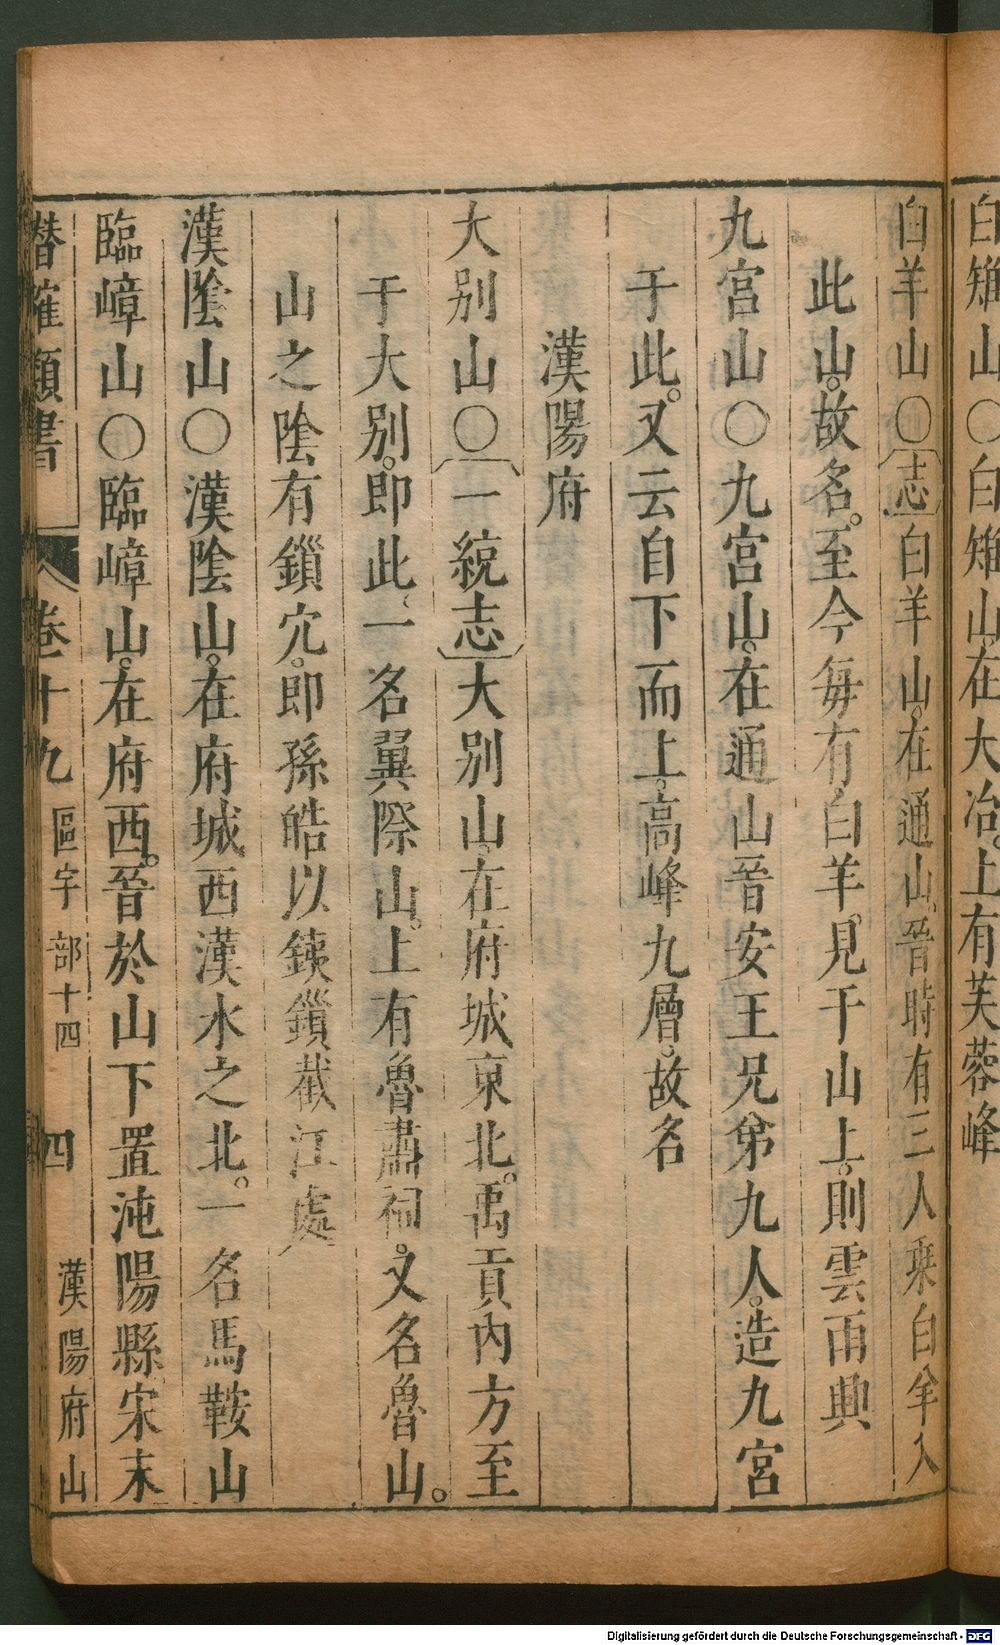 白雉山○白雉山。在大冶。上有芙蓉峰
白羊山○〔志〕白羊山。在通山。晉時有三人乘白羊入
此山。故名。至今每有白羊。見于山上。則雲雨興
九宮山○九宮山。在通山晉安王兄弟九人。造九宮
于此。又云自下而上。高峰九層。故名
漢陽府
大別山○〔一統志〕大別山。在府城東北。禹貢內方至
于大別。即此、一名翼際山。上有魯肅祠。又名魯山。
山之陰有鎖穴。即孫皓以鐵鎖截江處
漢陰山○漢陰山。在府城西漢水之北。一名馬鞍山
臨嶂山○臨嶂山。在府西。晉於山下置沌陽縣宋末
潛確類書 卷十九 區宇 部十四 四 漢陽府山
Digitalisierung gefördert durch die Deutsche Forschungsgemeinschaft - DFG